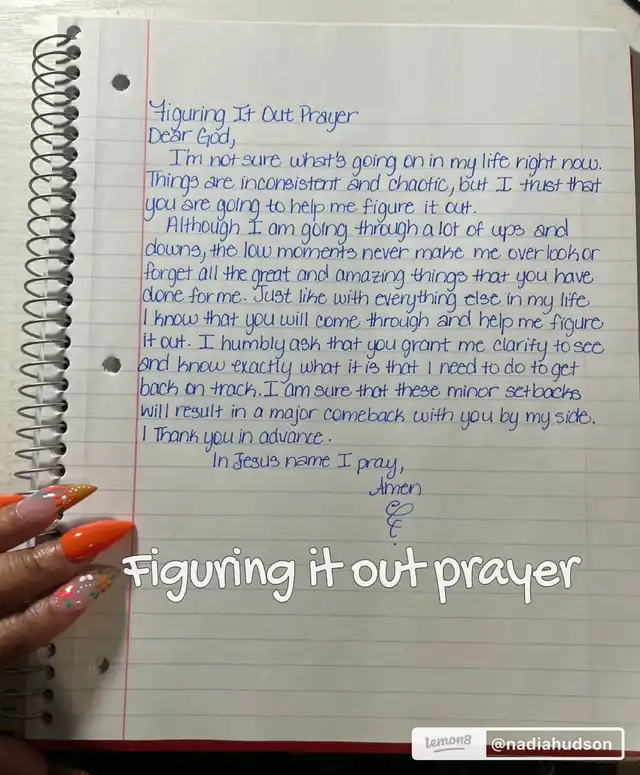 Figuring It Out Prayer
Dear God,
I'm not sure what's going on in my life right now.
Things are inconsistent and chaotic, but I trust that
you are going to help me figure it out.
Although I am going through a lot of ups and
downs, the low moments never make me overlook or
forget all the great and amazing things that you have
done for me. Just like with everything else in my life
I know that you will come through and help me figure
it out. I humbly ask that you grant me clarity to see
and know exactly what it is that I need to do to get
back on track. I am sure that these minor setbacks
will result in a major comeback with you by my side.
I Thank you in advance.
In Jesus name I pray,
Amen
Figuring it out prayer
lemon8 @nadiahudson